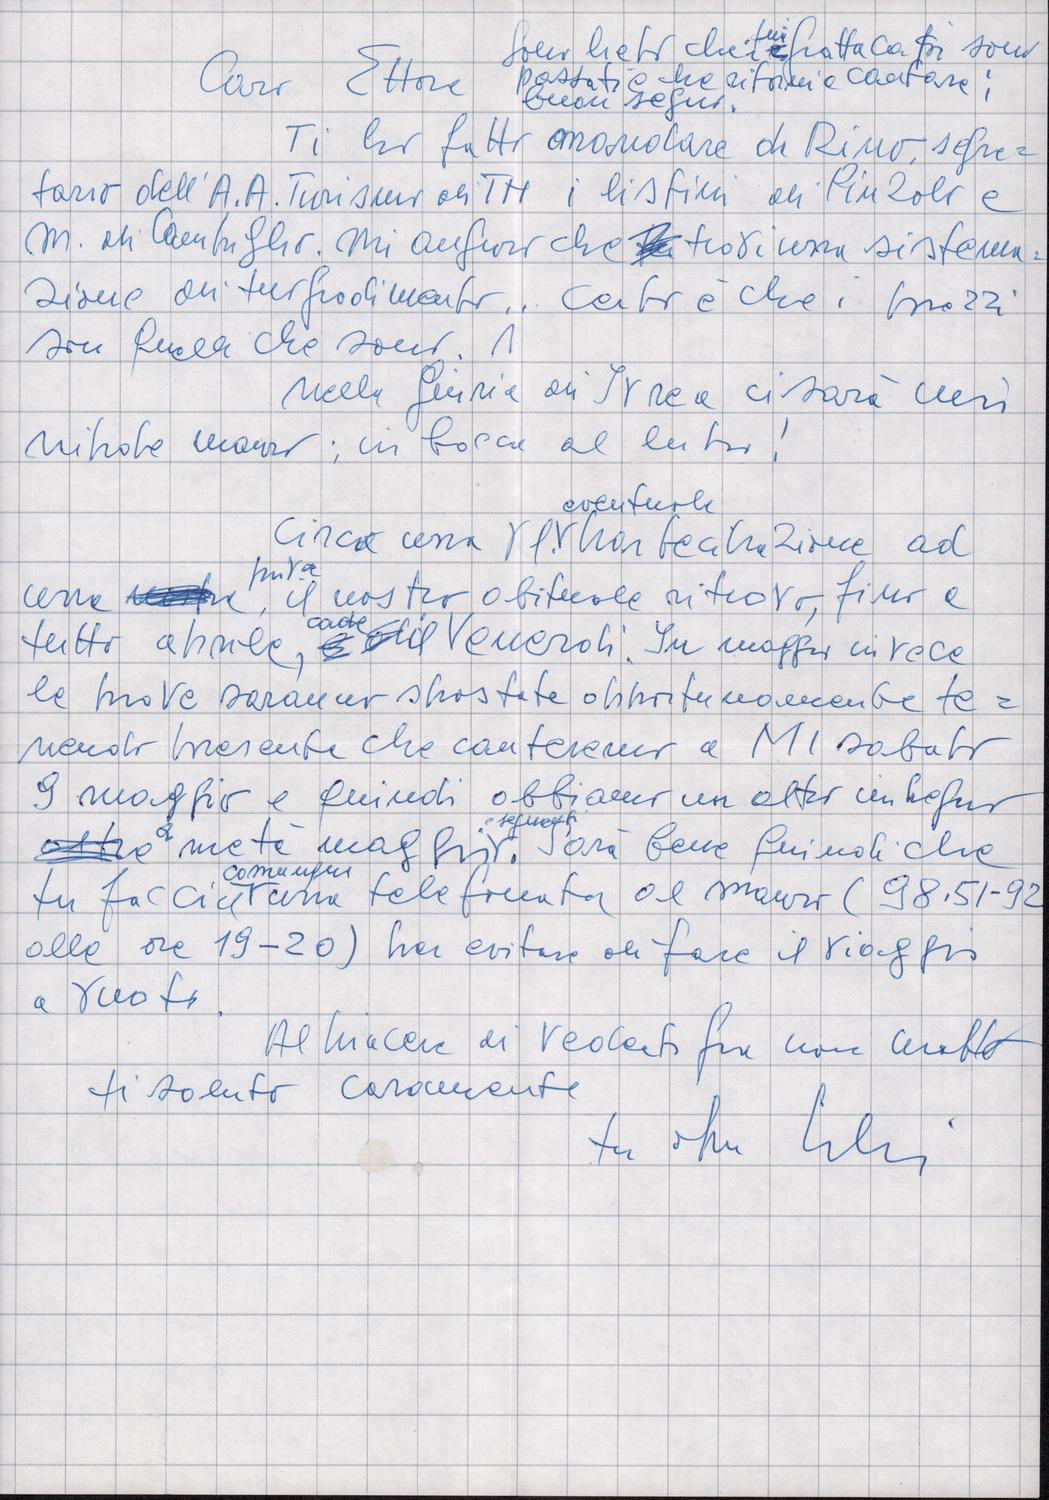 Caro Ettore
Sono lieto che i tuoi grattacapi sono
passati e che ritorni a cantare!
buon segno.
Ti ho fatto mandare da Rino, segre=
tario dell'A.A. Turismo di TN i listini di Pinzolo e
M. di Campiglio. Mi auguro che trovi una sistema=
zione di tuo gradimento.. Certo è che i prezzi
son quelli che sono. !
Nella giuria di Ivrea ci sarà mio
nipote Mauro; in bocca al lupo!
Circa una Vs. eventuale partecipazione ad
una prova, il nostro abituale ritrovo, fino a
tutto aprile, cade il Venerdì. In maggio invece
le prove saranno spostate opportunamente te=
nendo presente che canteremo a MI sabato
9 maggio e quindi abbiamo un altro impegno
a metà maggio e seguenti. Sarà bene quindi che
tu faccia comunque una telefonata al Mauro (98.51-92
alle ore 19-20) per evitare di fare il viaggio
a vuoto.
Al piacere di vederti fra non molto
ti saluto caramente
tuo